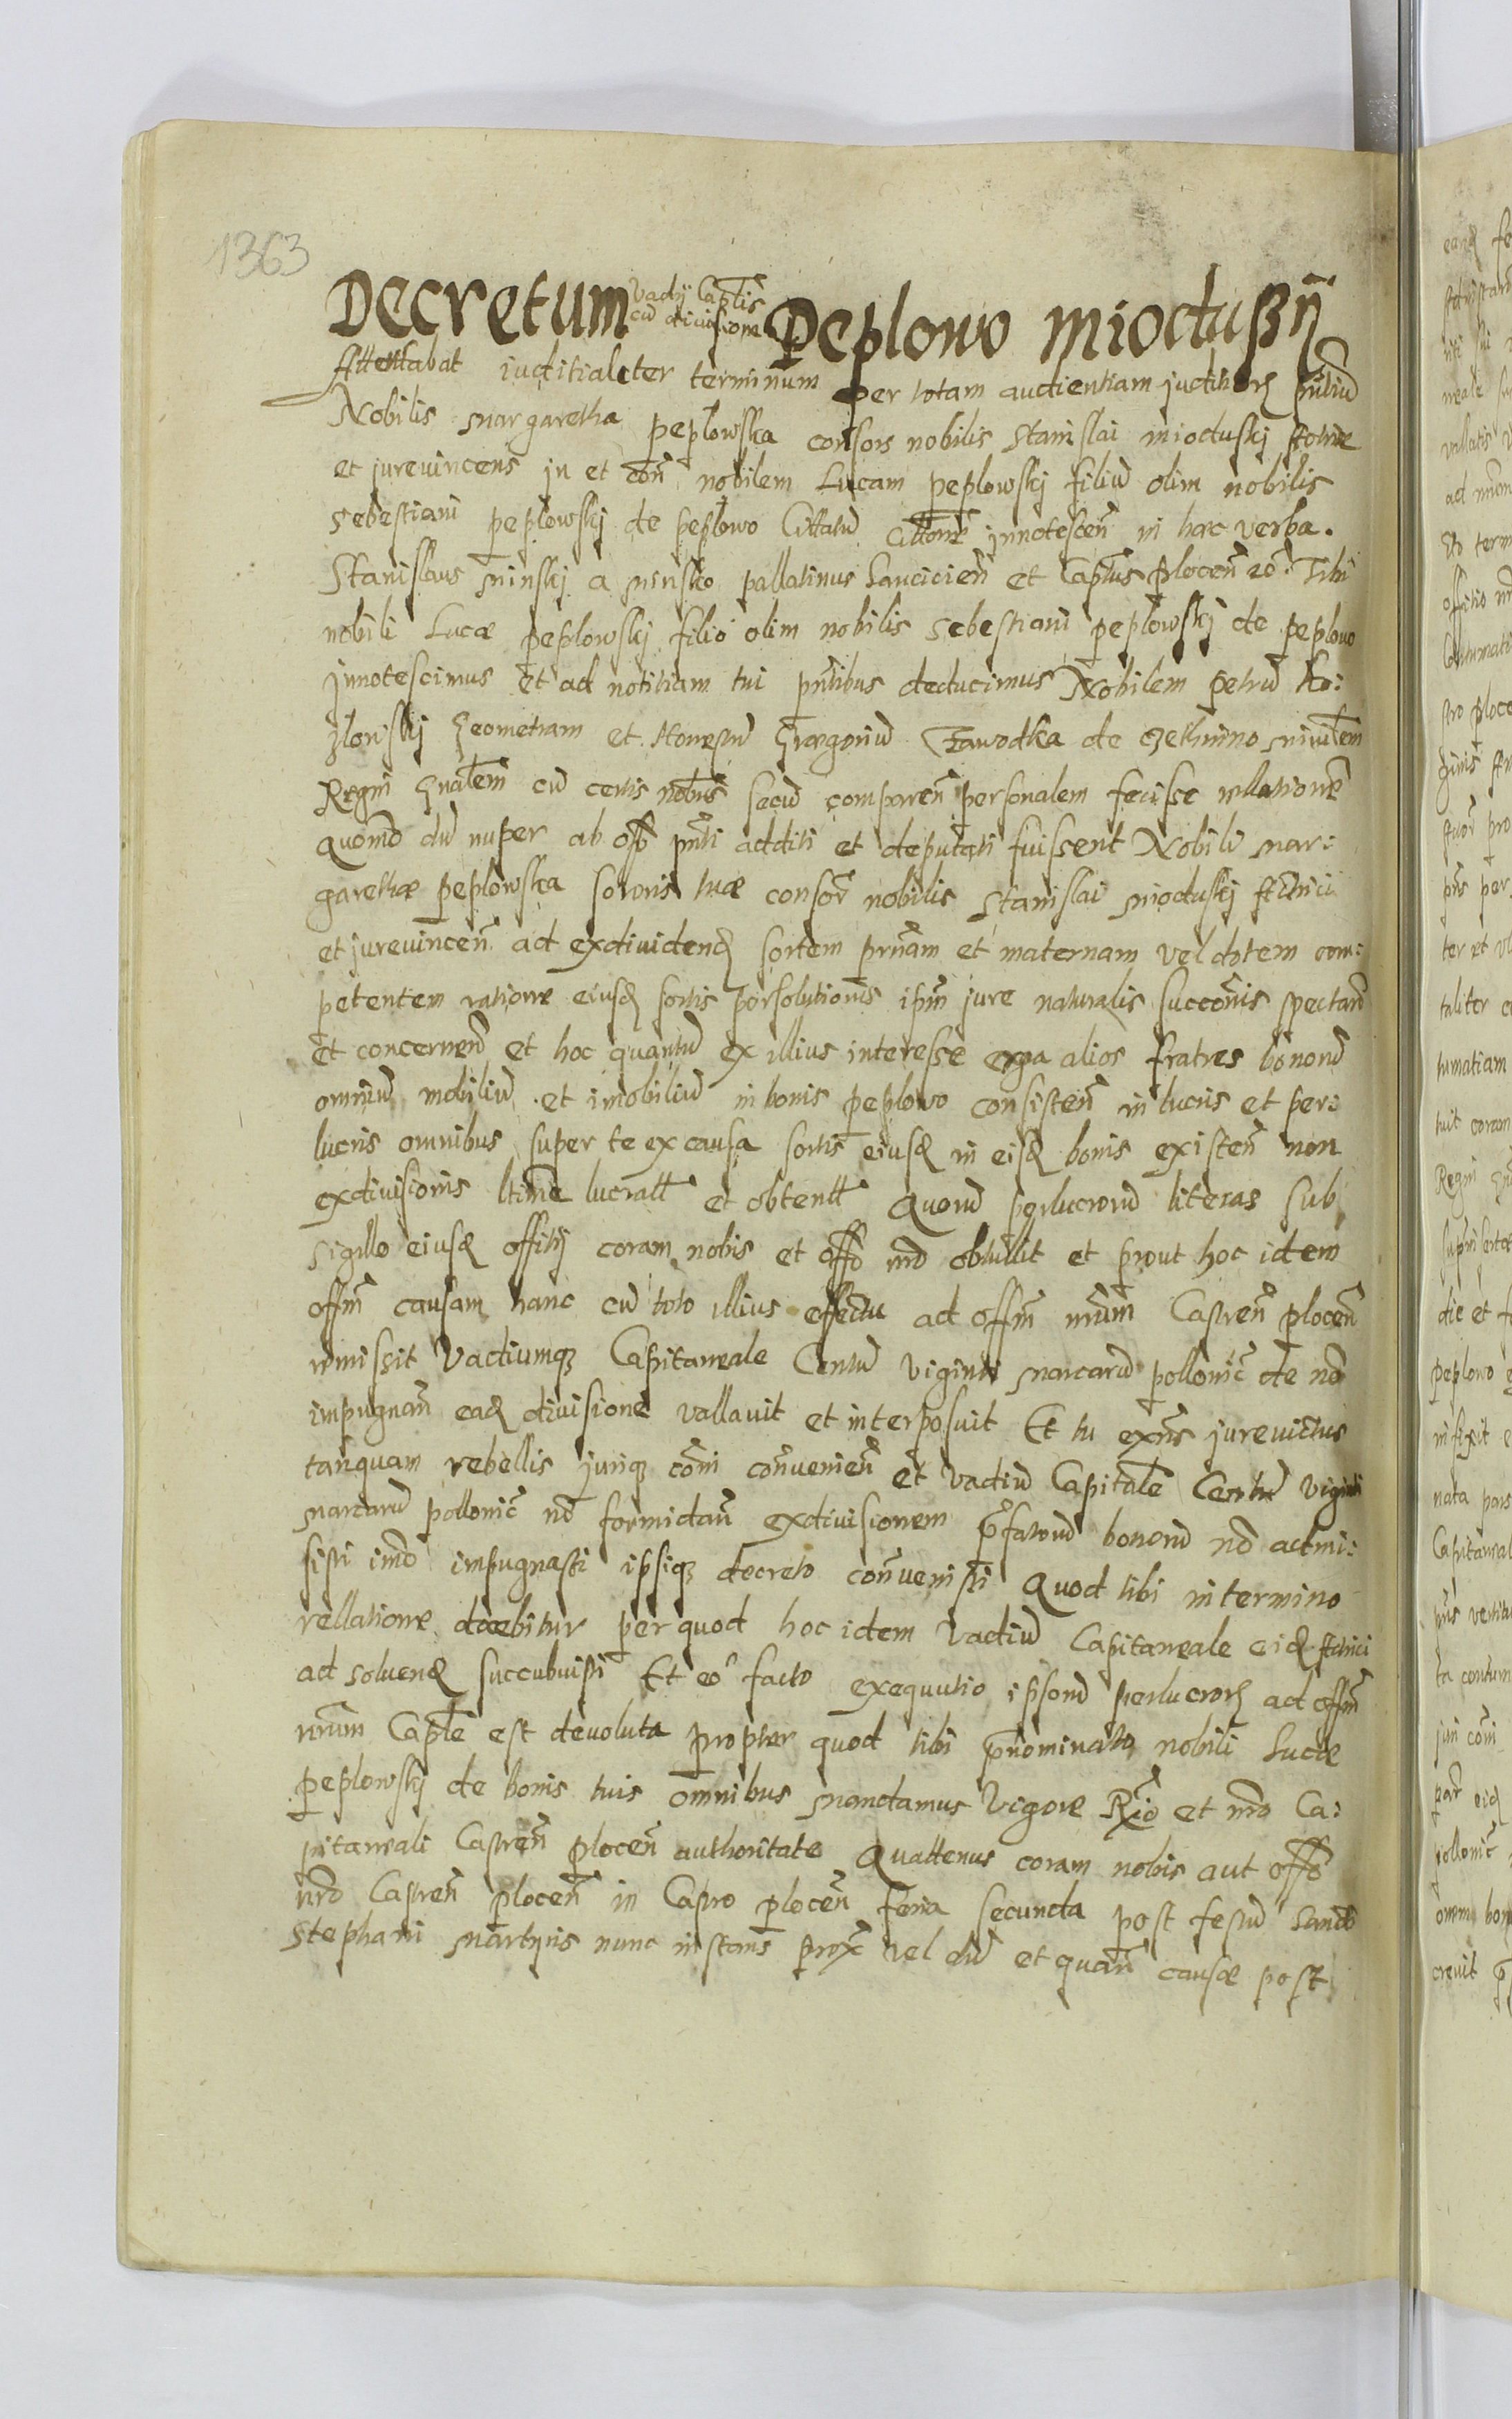 1363
Decretum vadÿ Captlis cū diuisione Peplowo Mioduskÿ
Attentabat iuditialiter terminum per totam audientiam juditiorȝ pn̄tiū
Nobilis Margaretha Peplowska consors nobilis Stanislai Mioduskj
et jurevincens jn et con̄ nobilem Lucam Peplowskj filiū olim nobilis
Sebestiani Peplowskj de Peplowo Cittatū Cittone innotescen̄ in haec verba.
Stanislaus Minskj a Minsko Pallatinus Lancicien̄ et Captus Plocen̄ eō Tibi
nobili Lucae Peplowskj filio olim nobilis Sebestiani Peplowskj de Peplowo
jnnotescimus et ad notitiam tui pn̄tibus deducimus Nobilem Petrū Ko:
zlowskj Geometram et Honestū Graegoriū Zawodka de minrlem
Regni Gn̄alem cū certis nobbus secū comparen̄ personalem fecisse rellatione
quomō dū nuper ab off̄o pn̄ti additi et deputati fuissent Nobili Mar:
garethae Peplowska sororis tuae consor̄ nobilis Stanislai Mioduskj Actrici
et jurevincen̄ ad exdividenȝ sortem prn̄am et maternam vel dotem com:
petentem ratione eiusȝ sortis persolutionis ipm̄ jure naturalis succōnis spectan̄
et concernen̄ et hoc quantū ex illius interesse erga alios fratres bonorū
omniū mobiliū et imobiliū in bonis Peplowo consisten̄ in lucris et per:
lucris omnibus super te ex causa sortis eiusȝ in eisȝ bonis existen̄ non
exdivisionis ltime lucratt et obtentt Quorū perlucrorū literas sub
sigillo eiusȝ offitij coram nobis et off̄o nr̄o obtullit et prout hoc idem
offm̄ causam hanc cū toto illius effectu ad offm̄ nrūm Castren̄ Plocen̄
remissit Vadiumqȝ Capitaneale Centū viginti Marcarū pollonic̄ de nō
impugnan̄ eaȝ divisione vallavit et interposuit Et tu exn̄s jurevictus
tanquam rebellis juriqȝ cōni convenien̄ et Vadiū Capitale Centū viginti
Marcarū pollonic̄ nō formidan̄ exdivisionem p̄fatorū bonorū nō admi:
sisti imō impugnasti ipsiqȝ decreto convenisti Quod tibi in termino
rellatione docebitur per quod hoc idem Vadiū Capitaneale eiȝ Actrici
ad solvenȝ succubuisti Et eō facto exequutio ipsorū perlucrorȝ ad offm̄
nrūm Captle est devoluta Propter quod tibi p̄nominato nobili Lucae
Peplowskj de bonis tuis omnibus Mandamus Vigore Rx̄io et nr̄o Ca:
pitaneali Castren̄ Plocen̄ authoritate Quattenus coram nobis aut off̄o
nr̄o Castren̄ Plocen̄ in Castro Plocen̄ feria secunda post festū Sancti
Stephani Martyris nunc instans prox̄ vel dū et quan̄ causae post